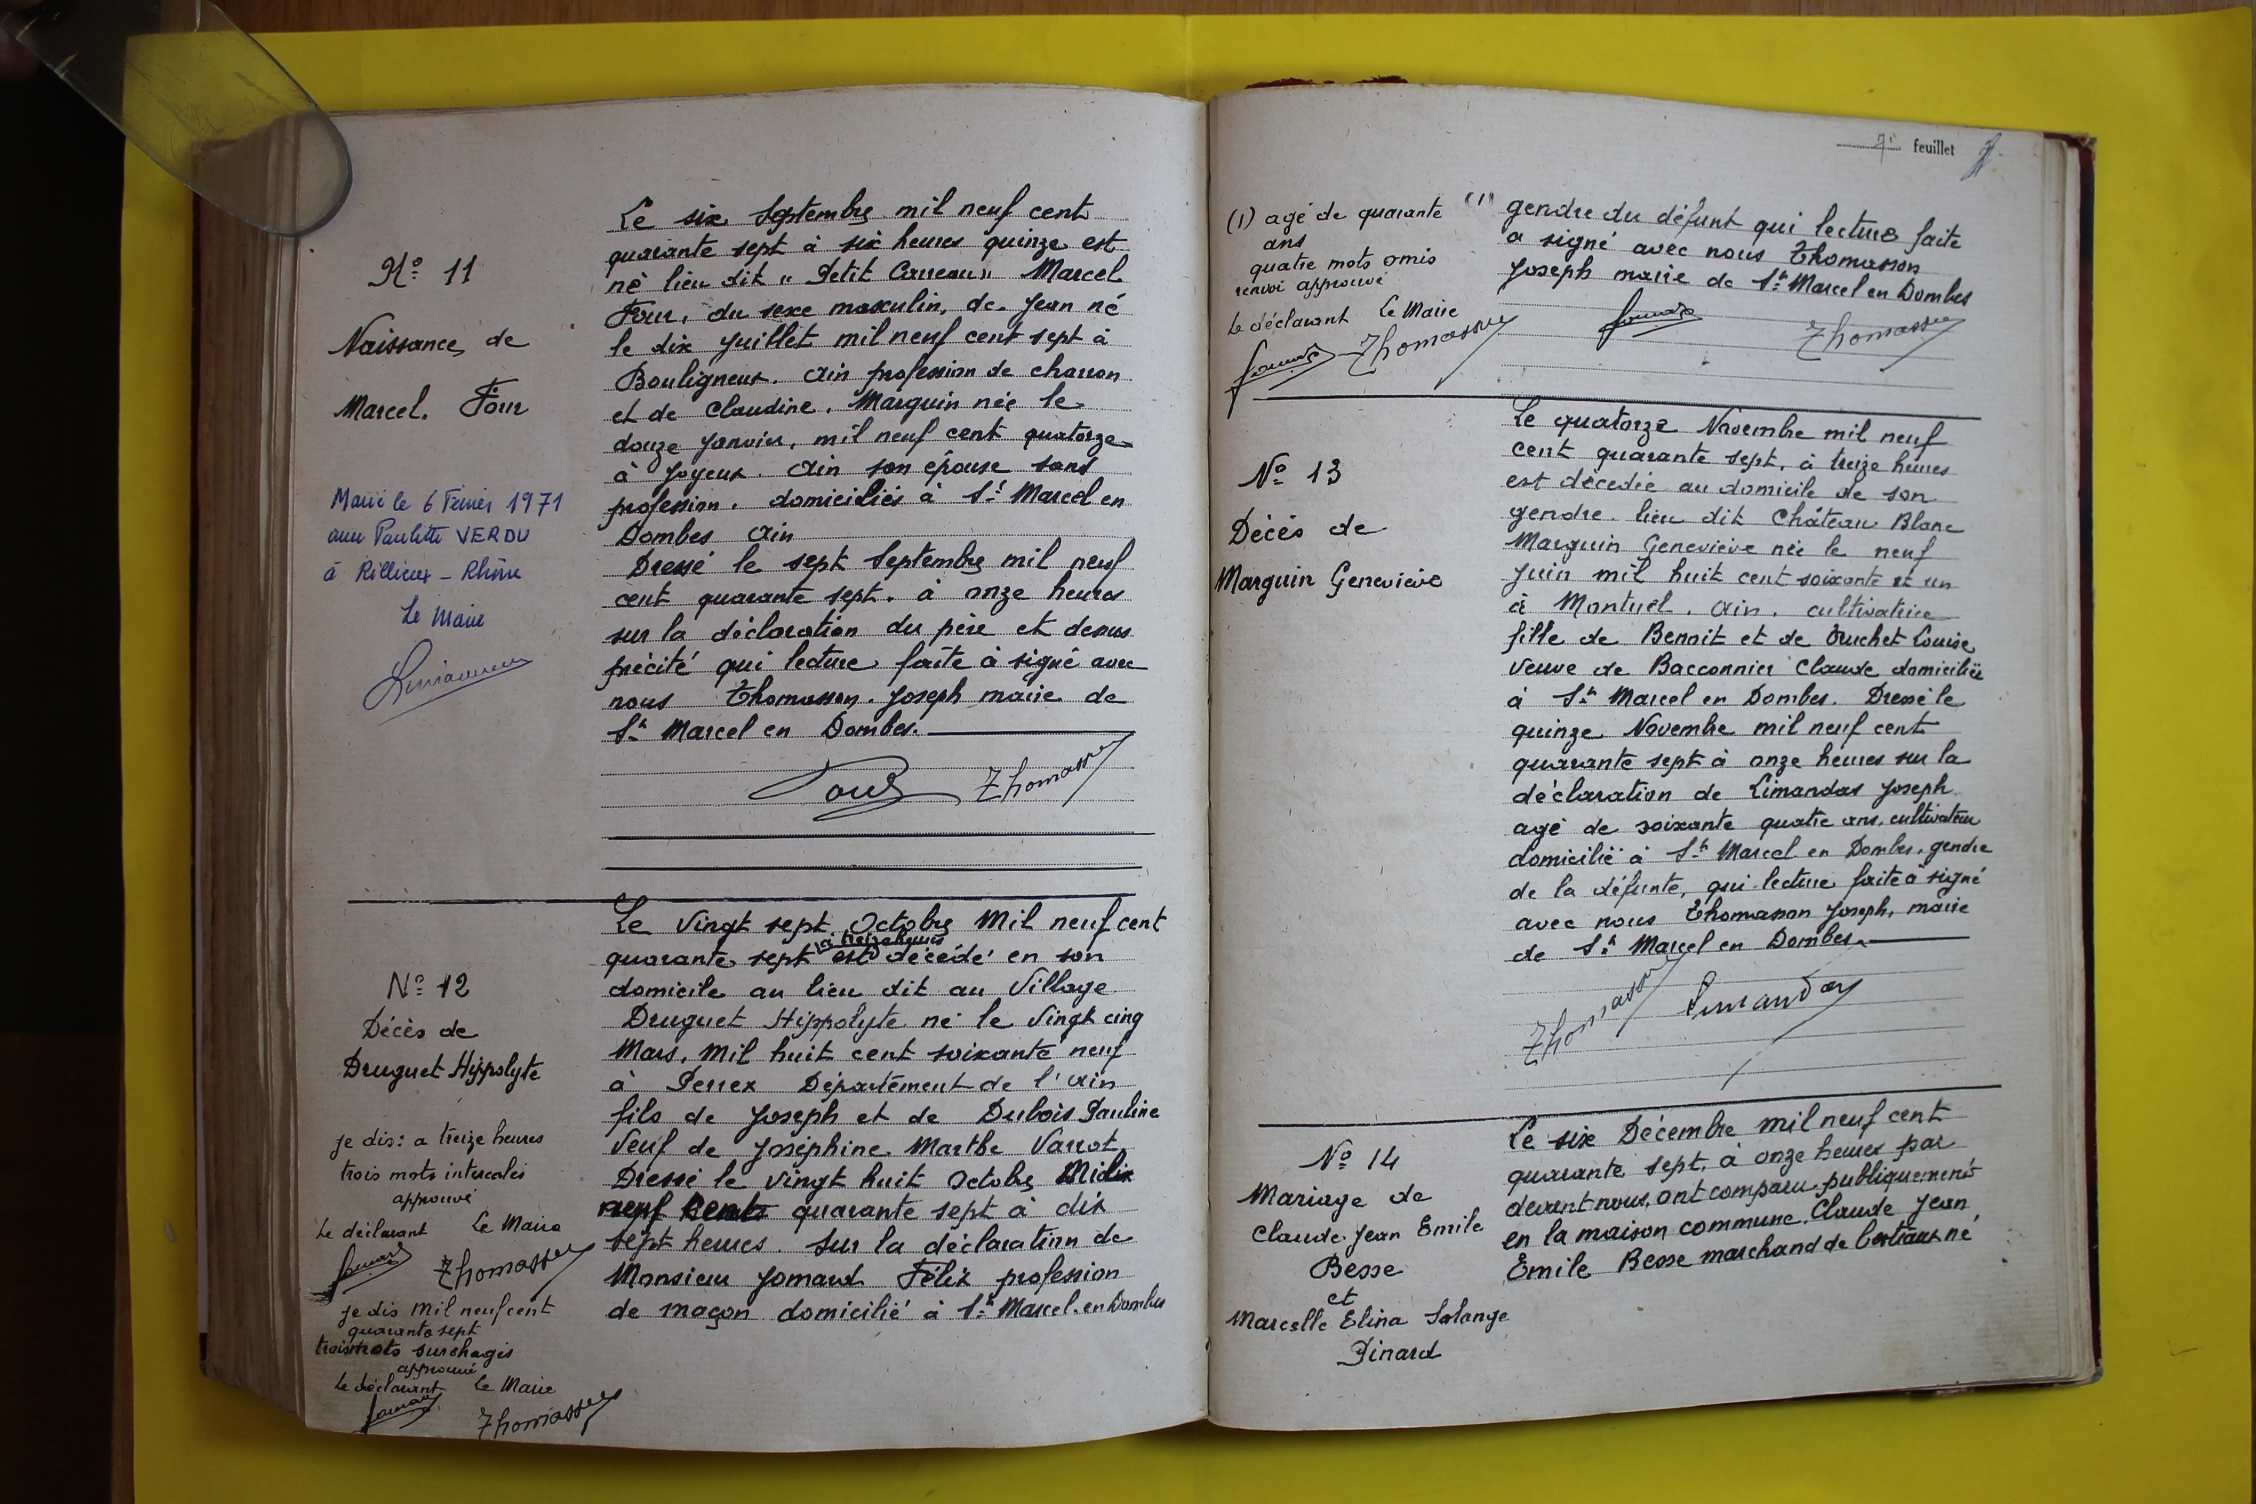 N° 11
Naissance de
Marcel. Four
Marié le 6 Février 1971
avec Paulette VERDU
à Rillieux - Rhône
Le Maire
Le six Septembre mil neuf cent
quarante sept à six heures quinze est
né lieu dit "Petit Carreau" Marcel
Four, du sexe masculin, de Jean né
le dix juillet mil neuf cent sept à
Bouligneux. Ain profession de charron
et de Claudine. Marguin née le
douze janvier, mil neuf cent quatorze
à Joyeux. Ain son épouse sans
profession. domiciliés à St Marcel en
Dombes Ain
Dressé le sept Septembre mil neuf
cent quarante sept. à onze heures
sur la déclaration du père et dessus
précité qui lecture faite à signé avec
nous Thomasson. Joseph maire de
St Marcel en Dombes.
Four Thomasson
N° 12
Décès de
Druguet Hippolyte
je dis: a treize heures
trois mots intercalés
approuvé
Le déclarant Le Maire
Jomard Thomasson
je dis mil neuf cent
quarante sept
trois mots surchagés
approuvé
Le déclarant Le Maire
Jomard Thomasson
Le Vingt sept Octobre Mil neuf cent
à treize heures
quarante sept est décédé en son
domicile au lieu dit au Village
Druguet Hippolyte né le Vingt cinq
Mars. Mil huit cent soixante neuf
à Perrex Département de l'Ain
fils de Joseph et de Dubois Pauline
Veuf de Joséphine Marthe Varrot
Dressé le Vingt huit Octobre Mil
neuf cent quarante sept à dix
sept heures. Sur la déclaration de
Monsieur Jomard Félix profession
de maçon domicilié à St Marcel en Dombes
7e feuillet
(1) agé de quarante
ans
quatre mots omis
renvoi approuvé
Le déclarant Le Maire
Jomard Thomasson
(1) gendre du défunt qui lecture faite
a signé avec nous Thomasson
Joseph maire de St Marcel en Dombes
Jomard Thomasson
N° 13
Décès de
Marguin Geneviève
Le quatorze Novembre mil neuf
cent quarante sept, à treize heures
est décédée au domicile de son
gendre. lieu dit Château Blanc
Marguin Geneviève née le neuf
Juin mil huit cent soixante et un
à Montuel. Ain. cultivatrice
fille de Benoit et de Truchet Louise
Veuve de Bacconnier Claude domiciliée
à St Marcel en Dombes. Dressé le
quinze Novembre mil neuf cent
quarante sept à onze heures sur la
déclaration de Limandas Joseph
agé de soixante quatre ans. cultivateur
domicilié à St Marcel en Dombes. gendre
de la défunte, qui lecture faite à signé
avec nous Thomasson Joseph, maire
de St Marcel en Dombes.
Thomasson Limandas
N° 14
Mariage de
Claude Jean Emile
Besse
et
Marcelle Elina Solange
Pinard
Le six Décembre mil neuf cent
quarante sept, à onze heures par
devant nous, ont comparu publiquement
en la maison commune. Claude Jean
Emile Besse marchand de bestiaux né